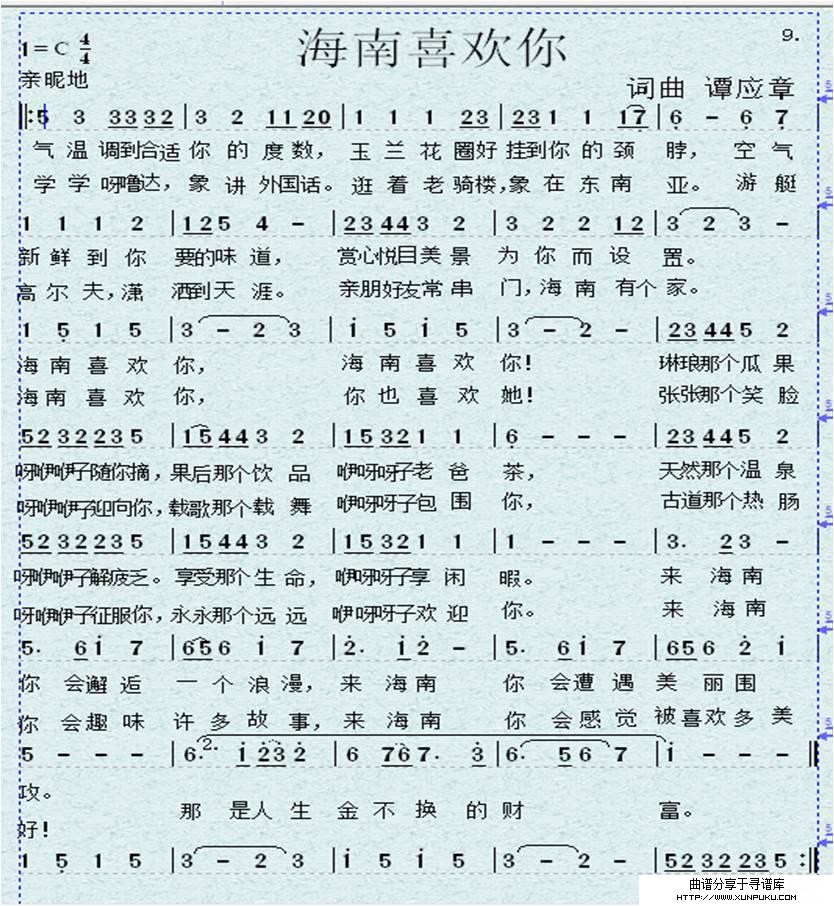 海南喜欢你
9.
1=C 4/4
亲昵地
词曲 谭应章
‖:5 3 3332|3 2 11 20|1 1 1 23|231 1 17|6 - 6 7
气温调到合适你的度数，玉兰花圈好挂到你的颈脖，空气
学学呀噜达，象讲外国话。逛着老骑楼，象在东南亚。游艇
1 1 1 2 |125 4 - |23 44 3 2 |3 2 2 12 |3 2 3 -
新鲜到你要的味道，赏心悦目美景为你而设置。
高尔夫，潇洒到天涯。亲朋好友常串门，海南有个家。
1 5 1 5 |3 - 2 3 |i 5 i 5 |3 - 2 - |23 44 5 2
海南喜欢你，海南喜欢你！琳琅那个瓜果
海南喜欢你，你也喜欢她！张张那个笑脸
52 32 23 5 |15 44 3 2 |15 321 1 |6 - - - |23 44 5 2
呀咿咿子随你摘，果后那个饮品咿呀呀子老爸茶，天然那个温泉
呀咿咿子迎向你，载歌那个载舞咿呀呀子包围你，古道那个热肠
52 32 23 5 |15 44 3 2 |15 321 1 |1 - - - |3. 23 -
呀咿咿子解疲乏。享受那个生命，咿呀呀子享闲暇。来海南
呀咿咿子征服你，永永那个远远咿呀呀子欢迎你。来海南
5. 6i 7 |656 i 7 |2. i2 - |5. 6i 7 |656 2 i
你会邂逅一个浪漫，来海南你会遭遇美丽围
你会趣味许多故事，来海南你会感觉被喜欢多美
5 - - - |6. 2. i 232 |6 767. 3 |6. 56 7 |i - - - ‖
攻。
那是人生金不换的财富。
好！
1 5 1 5 |3 - 2 3 |i 5 i 5 |3 - 2 - |52 32 23 5 :‖
曲谱分享于寻谱库
HTTP://WWW.XUNPUKU.COM